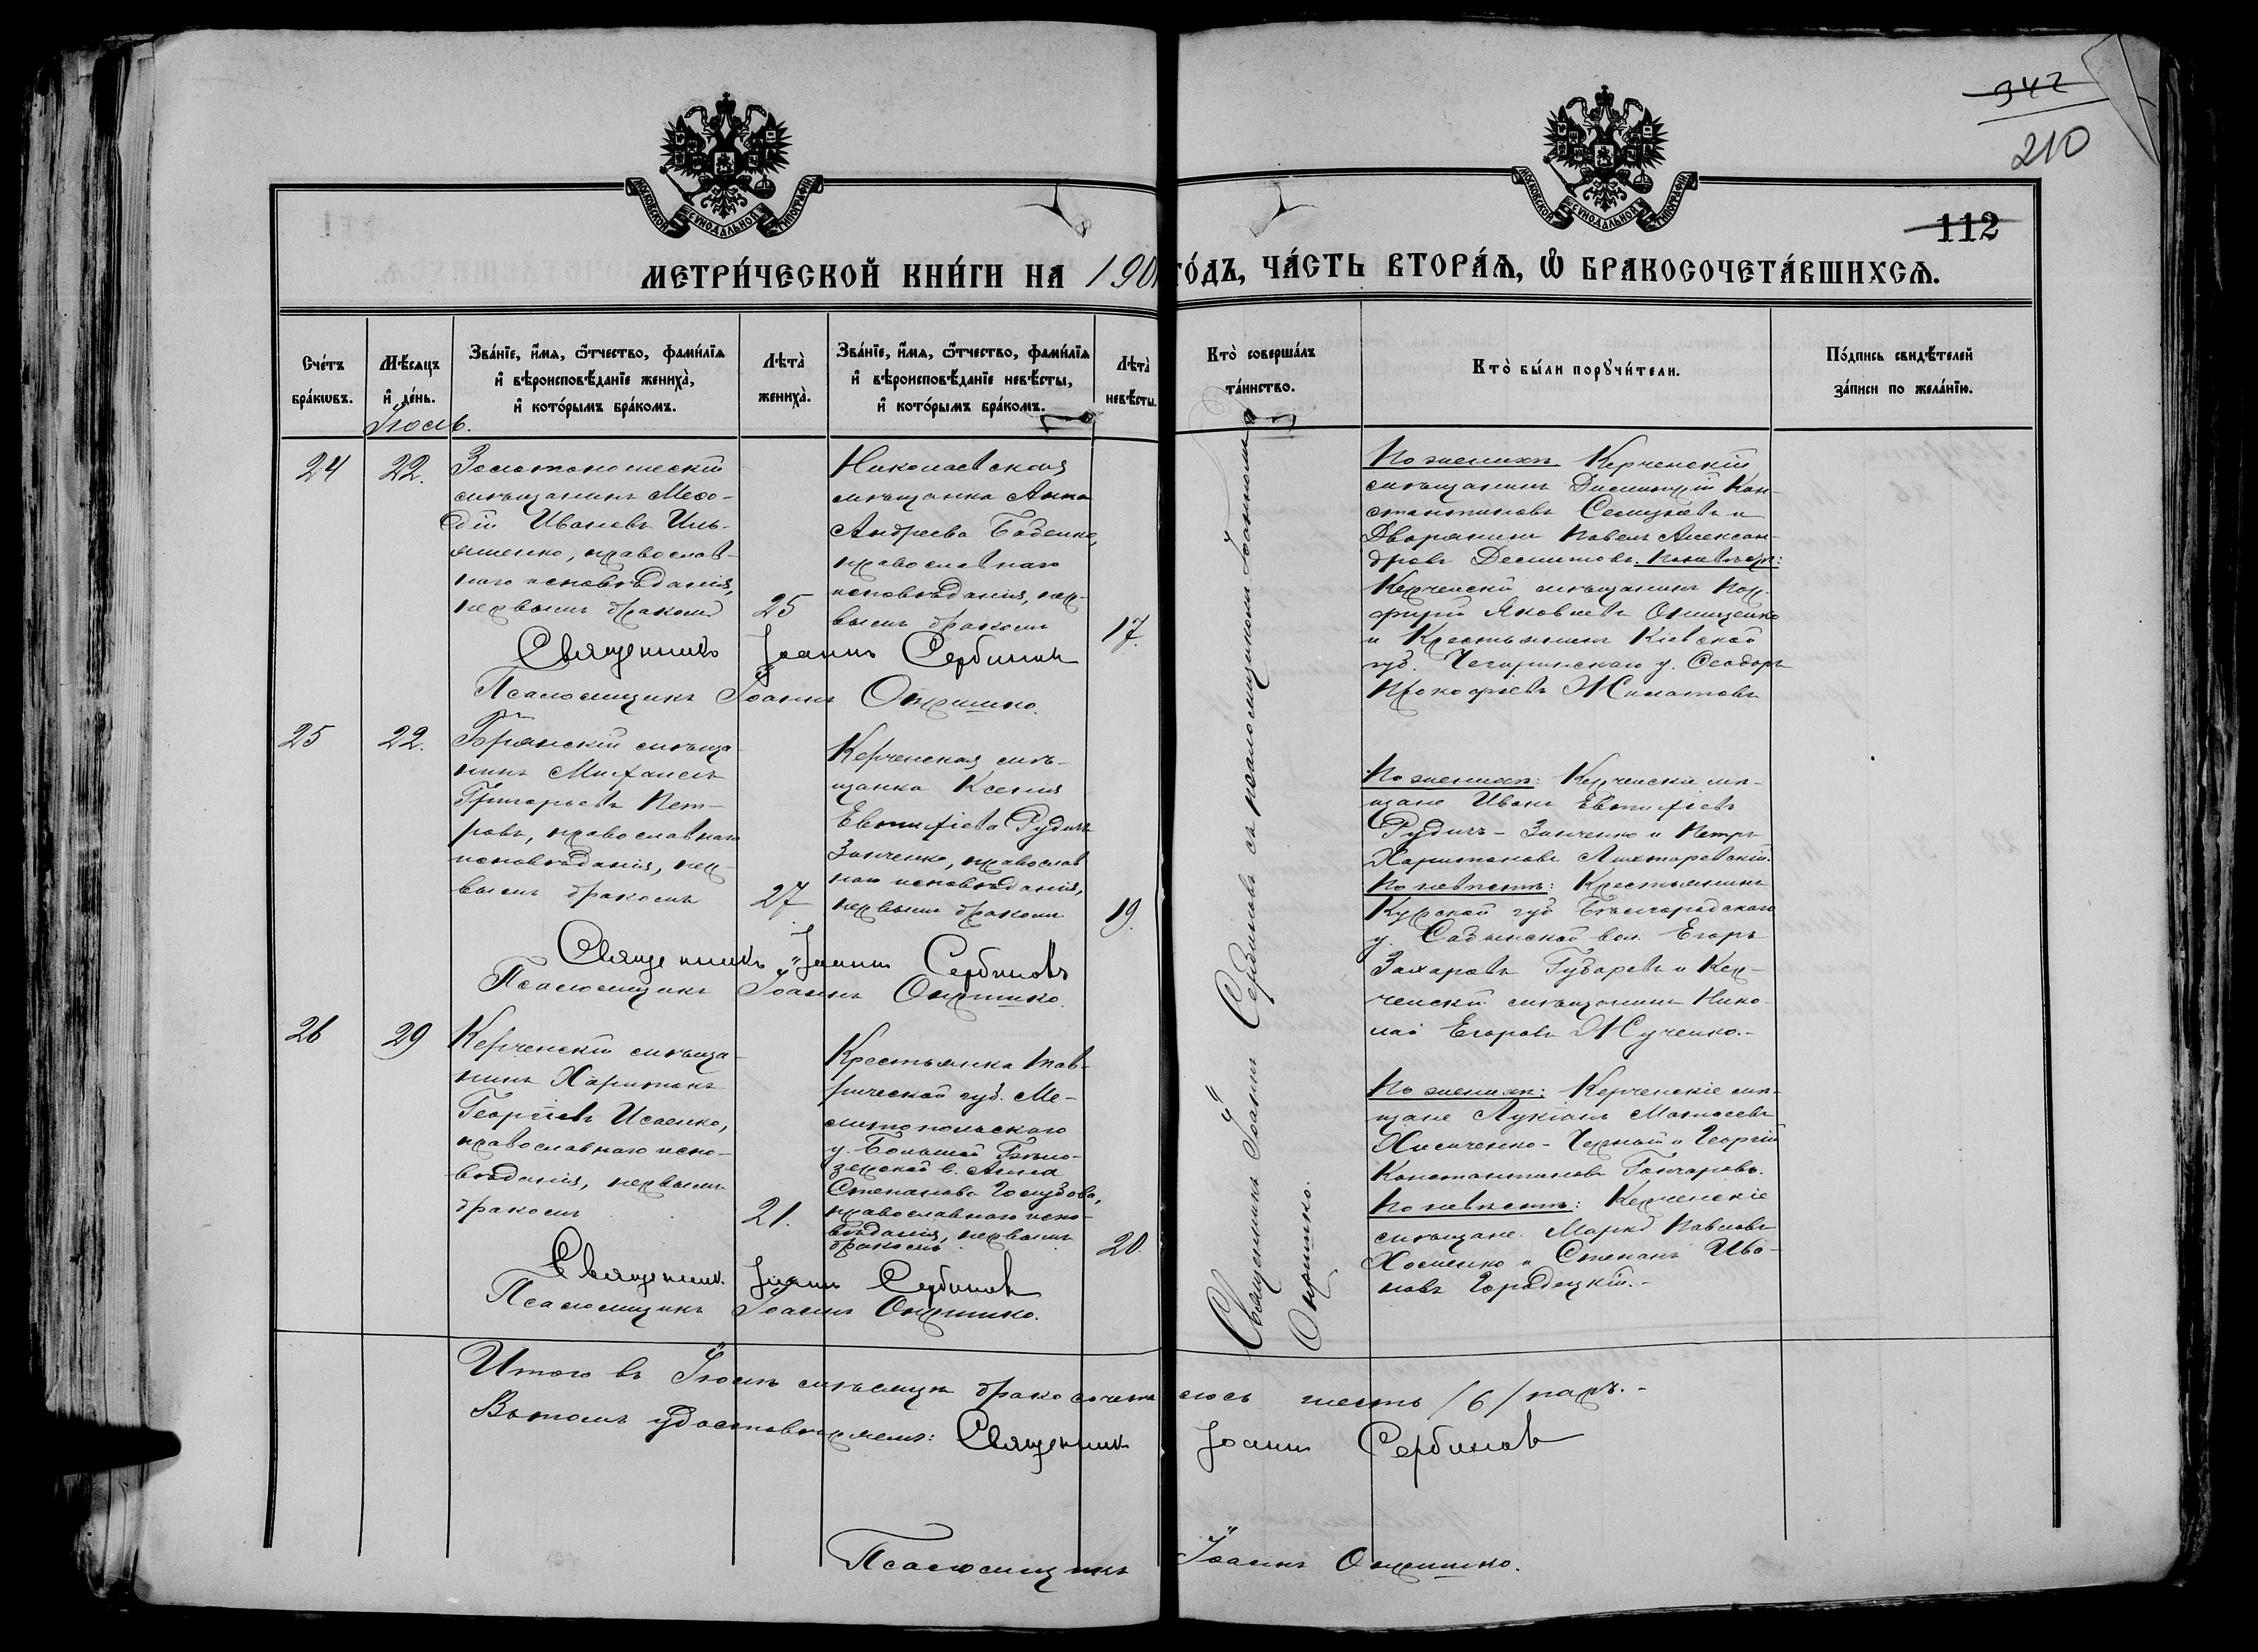 342
210
МОСКОВСКОЙ СѴНОДАЛЬНОЙ ТИПОГРАФІИ
МОСКОВСКОЙ СѴНОДАЛЬНОЙ ТИПОГРАФІИ
112
МЕТРИ́ЧЕСКОЙ КНИ́ГИ НА 190
ГО́ДЪ, ЧА́СТЬ ВТОРА́Ѧ, Ѽ БРАКОСОЧЕТА́ВШИХСѦ.
Сче́тъ
бра́кѡвъ.
Мѣ́сяцъ
и҆ де́нь.
Зва́нїе, и҆́мѧ, ѻ҆́тчество, фами́лїѧ
и҆ вѣроисповѣ́данїе жениха̀,
и҆ кото́рымъ бра́комъ.
Лѣта̀
жениха̀.
Зва́нїе, и҆́мѧ, ѻ҆́тчество, фами́лїѧ
и҆ вѣроисповѣ́данїе невѣ́сты,
и҆ кото́рымъ бра́комъ.
Лѣта̀
невѣ́сты.
Кто̀ соверша́лъ
та́инство.
Кто̀ бы́ли порꙋчи́тели.
По́дпись свидѣ́телей
за́писи по жела́нїю.
Іюль.
24
22.
Золотоношескій
мѣщанинъ Меѳо-
дій Ивановъ Иль-
яшенко, православ-
наго исповѣданія,
первымъ бракомъ
25
Николаевская
мѣщанка Анна
Андреева Базенко,
православнаго
исповѣданія, пер-
вымъ бракомъ
17.
По женихѣ: Керченскій
мѣщанинъ Димитрій Кон-
стантиновъ и
Дворянинъ Павелъ Алексан-
дровъ По невѣстѣ:
Керченскій мѣщанинъ Пор-
фирій Яковлевъ Онищенко
и Крестьянинъ Кіевской
губ. Чегиринскаго у. Ѳеодоръ
Прокофіевъ
Священникъ Іоаннъ Сербиновъ
Псаломщикъ Іоаннъ Опришко.
25
22.
Брянскій мѣща-
нинъ Михаилъ
Григорьевъ Пет-
ровъ, православнаго
исповѣданія, пер-
вымъ бракомъ
27
Керченская мѣ-
щанка Ксенія
Евтихіева Рудичъ
Зинченко, православ
наго исповѣданія,
первымъ бракомъ
19.
По женихѣ: Керченскіе мѣ-
щане Иванъ Евтихіевъ
Рудичъ-Зинченко и Петръ
Харитоновъ Ахтаревскій.
По невѣстѣ: Крестьянинъ
Курской губ Бѣлгородскаго
у. вол. Егоръ
Захаровъ Губаревъ и Кер-
ченскій мѣщанинъ Нико-
лай Егоровъ Жученко.-
Священникъ Іоаннъ Сербиновъ
Псаломщикъ Іоаннъ Опришко.
26
29
Керченскій мѣща-
нинъ Харитонъ
Георгіевъ Исаенко,
православнаго испо-
вѣданія, первымъ
бракомъ
21.
Крестьянка Тав-
рической губ. Ме-
литопольскаго
у. Большой Бѣло-
зерской в. Анна
Степанова Голубова,
православнаго испо-
вѣданія, первымъ
бракомъ
20.
По женихѣ: Керченскіе мѣ-
щане Лукіанъ Матвѣевъ
и Георгій
Константиновъ Гончаровъ.
По невѣстѣ: Керченскіе
мѣщане Маркъ Павловъ
Хоменко и Степанъ Ива-
новъ Городецкій.-
Священникъ Іоаннъ Сербиновъ
Псаломщикъ Іоаннъ Опришко.
Священникъ Іоаннъ Сербиновъ съ псаломщикомъ Іоанномъ
Опришко.
Итого въ Іюлѣ мѣсяцѣ бракосочеталось шесть /6/ паръ.-
Въ томъ удостовѣряемъ: Священникъ Іоаннъ Сербиновъ
Псаломщикъ Іоаннъ Опришко.